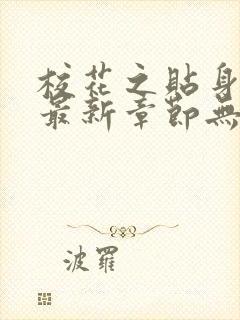 校花之貼身
最新章節無
波羅